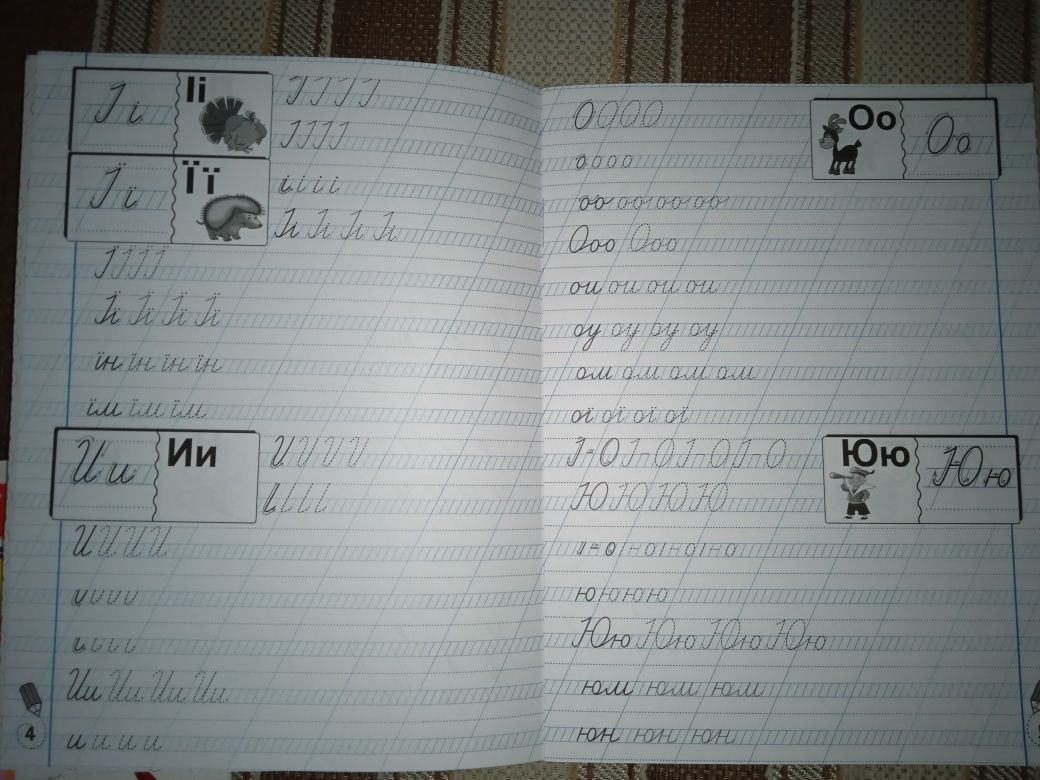 І і Іі І І І І
І І І І
Ї ї Її і і і і
Іі Іі Іі Іі
Ї Ї Ї Ї
Її Її Її Її
їн їн їн їн
їм їм їм
И и Ии
И И И И
и и и и
и и и и
Ии Ии Ии Ии
и и и и
4
О О О О Оо Оо
о о о о
оо оо оо оо
Ооо Ооо
ои ои ои ои
оу оу оу оу
ом ом ом ом
ої ої ої ої
І-О І-О І-О І-О Юю Юю
Ю Ю Ю Ю
ı-о ı-о ı-о ı-о
ю ю ю ю
Юю Юю Юю Юю
юм юм юм
юн юн юн